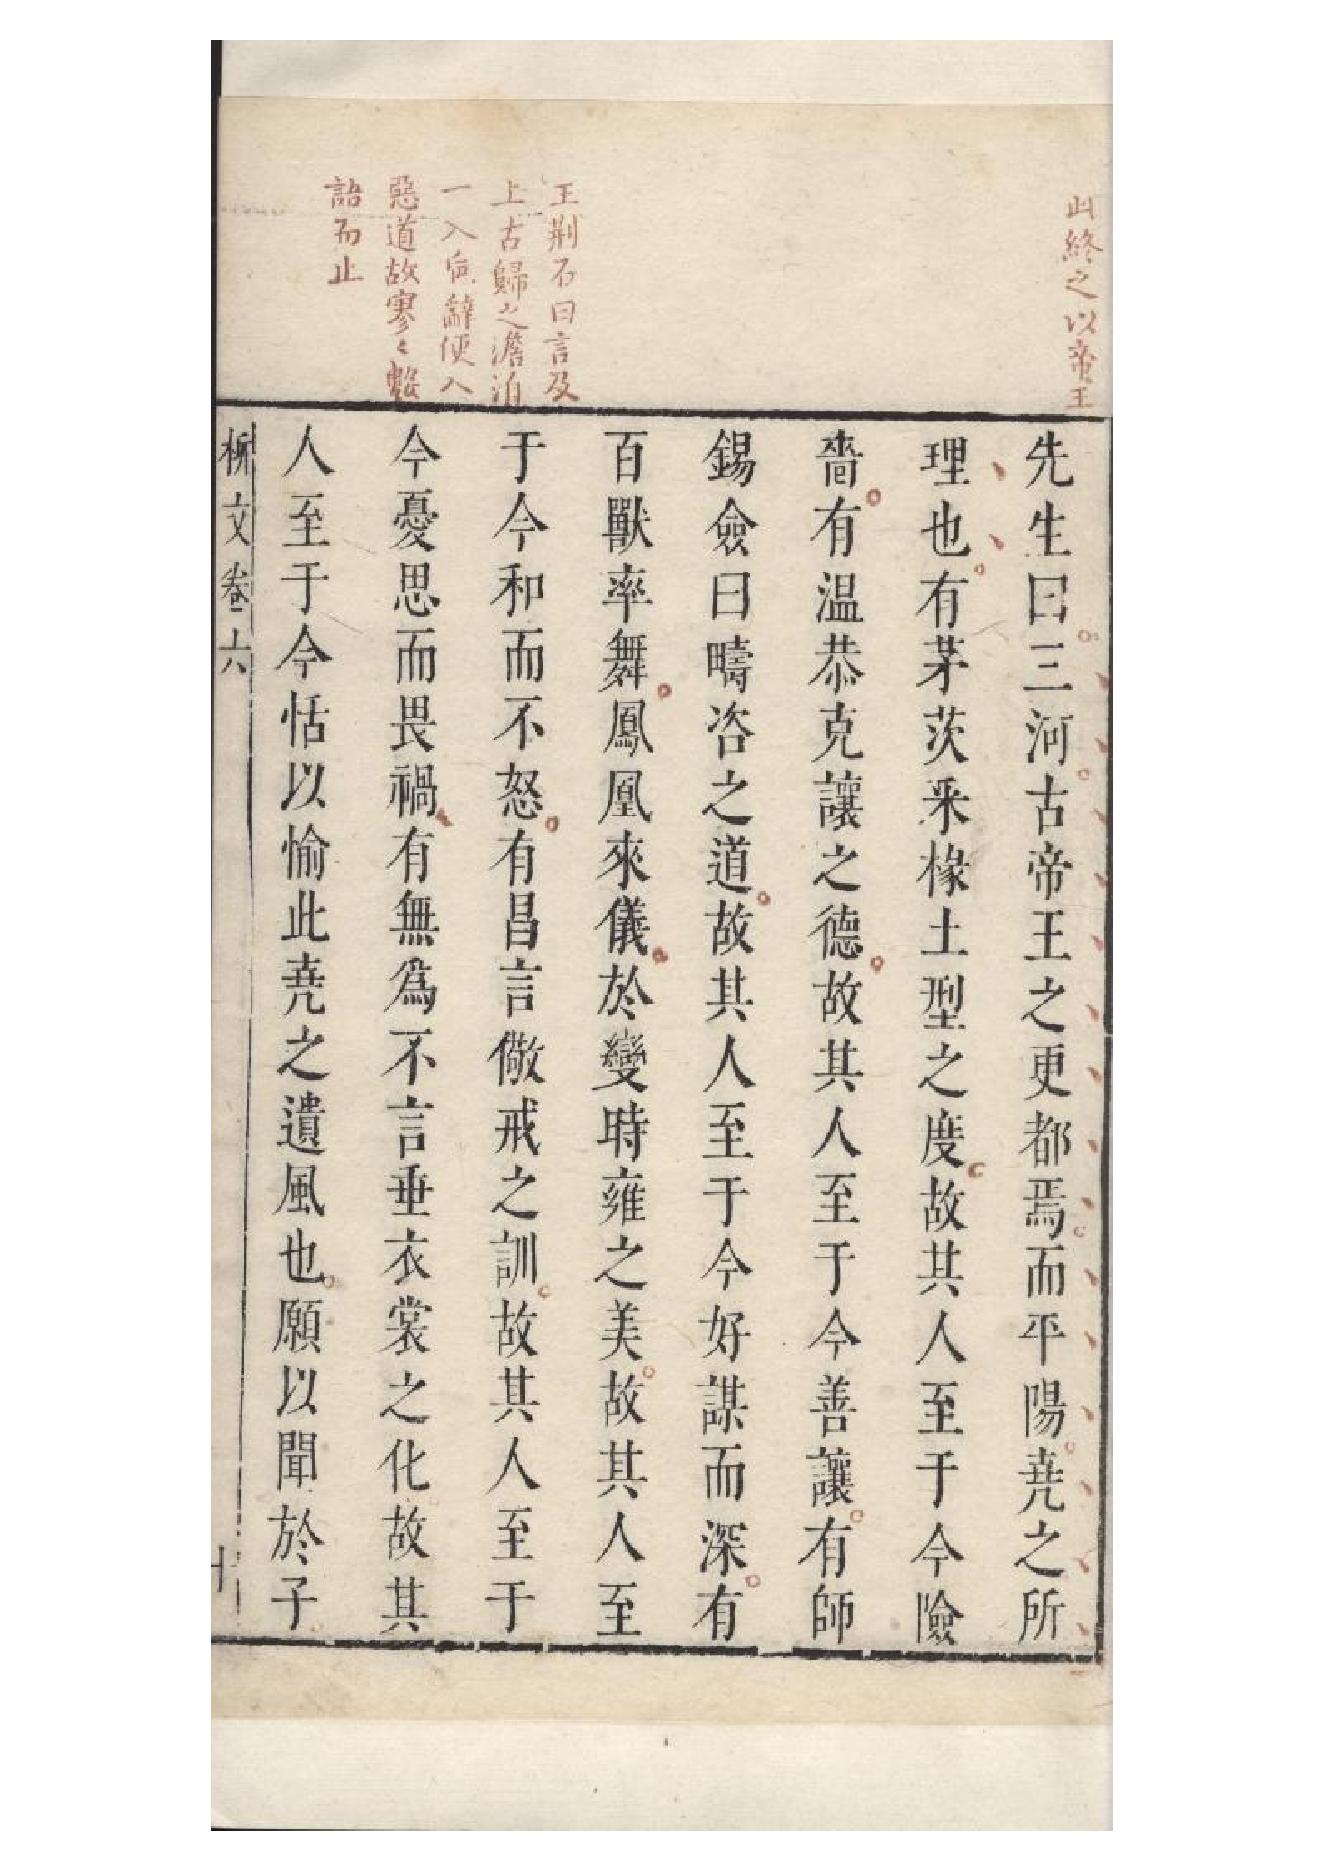 此終之以帝王
先生曰三河古帝王之更都焉而平陽堯之所
理也有茅茨采椽土型之度故其人至于今險
嗇有温恭克讓之德故其人至于今善讓有師
錫僉曰疇咨之道故其人至于今好謀而深有
百獸率舞鳳凰來儀於變時雍之美故其人至
于今和而不怒有昌言儆戒之訓故其人至于
今憂思而畏禍有無爲不言垂衣裳之化故其
人至于今恬以愉此堯之遺風也願以聞於子
王荆石曰言及
上古歸之澹泊
一入辭便入
惡道故寥々數
語而止
柳文卷六
十